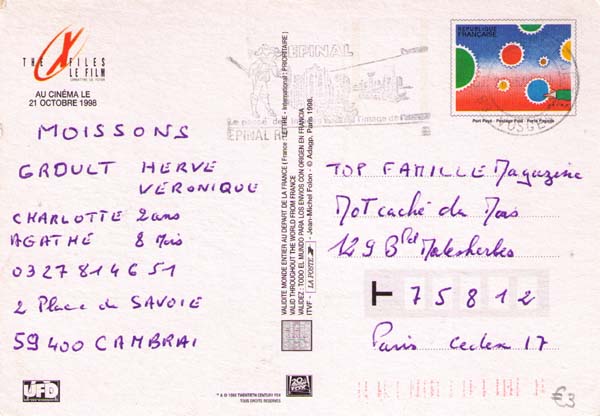 THE X FILES
LE FILM
AU CINÉMA LE
21 OCTOBRE 1998
MOISSONS
GROULT HERVE
VERONIQUE
CHARLOTTE 2 ans
AGATHE 8 Mois
0327814651
2 Place de SAVOIE
59400 CAMBRAI
UFD
EPINAL
EPINAL
l'image de
VOSGES
RÉPUBLIQUE
FRANÇAISE
Port Payé - Postage Paid - Porte Pagado
VALIDITÉ MONDE ENTIER AU DÉPART DE LA FRANCE (France : LETTRE - International : PRIORITAIRE)
VALID THROUGHOUT THE WORLD FROM FRANCE
VALIDEZ : TODO EL MUNDO PARA LOS ENVIOS CON ORIGEN EN FRANCIA
ITVF - LA POSTE - Jean-Michel Folon - © Adagp, Paris 1998.
TOP FAMILLE Magazine
Mot caché du Mois
129 Bld Malesherbes
T 75812
Paris cedex 17
* & © 1998 TWENTIETH CENTURY FOX
TOUS DROITS RÉSERVÉS
20
FOX
€3